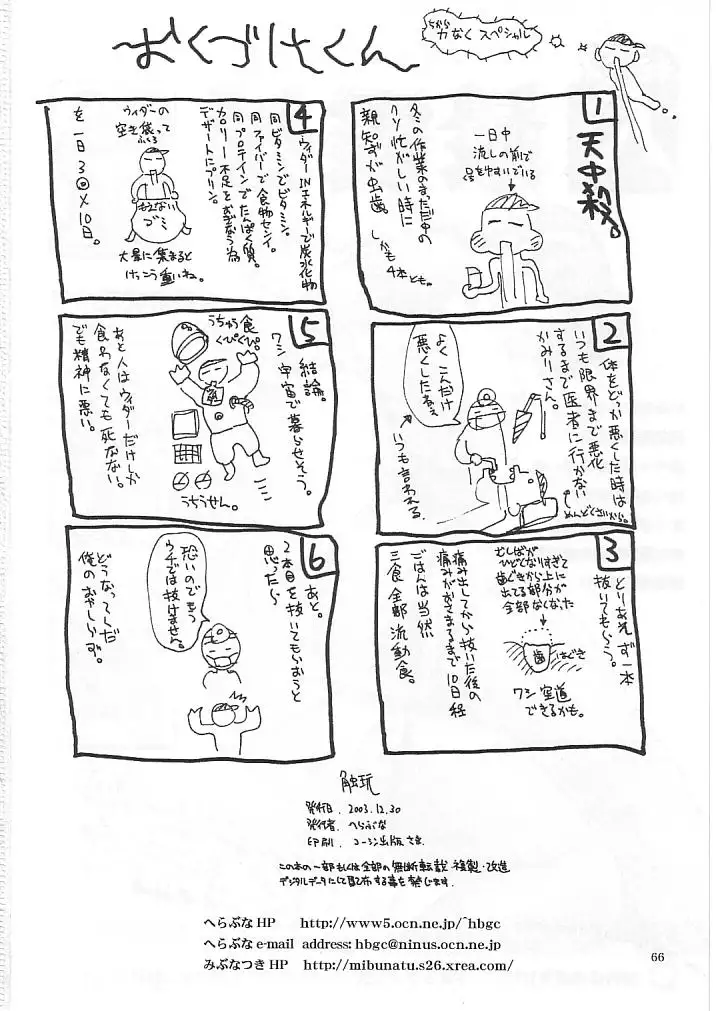 おくづけくん
ちから
力なくスペシャル
1
天中殺。
一日中
流しの前で
冬の作業のまっただ中の
クソ忙がしい時に
親知らずが虫歯。
しかも4本とも。
2
体をどっか悪くした時は
いつも限界まで悪化
するまで医者に行かない
かみりさん。
めんどくさいから。
よくこんだけ
悪くしたねえ
いつも言われる。
3
とりあえず一本
抜いてもらう。
むしばが
ひどくなりすぎて
歯ぐきから上に
出てる部分が
全部なくなった
歯
はぐき
ワシ空道
できるかも。
痛み出してから抜いた後の
痛みがおさまるまで10日経
ごはんは当然
三食全部流動食。
4
ウィダーINエネルギーで炭水化物
同ビタミンでビタミン。
同ファイバーで食物センイ。
同プロテインでたんぱく質。
カロリー不足をおぎなう為
デザートにプリン。
を一日3回×10日。
ウィダーの
空き袋って
もえない
ゴミ
大量に集まると
けっこう重いね。
5
結論。
ワシ宇宙で暮らせそう。
うちゅう食
くぴくぴ。
うちうせん。
あと人はウィダーだけしか
食わなくても死なない。
でも精神に悪い。
6
あと。
2本目を抜いてもらおうと
思ったら
恐いのでもう
ウチでは抜けません。
どうなってんだ
俺のおやしらず。
触玩
発行日. 2003.12.30
発行者. へらぶな
印刷. コーシン出版さま
この本の一部もしくは全部の無断転載・複製・改造
デジタルデータにして配布する事を禁じます.
へらぶなHP http://www5.ocn.ne.jp/~hbgc
へらぶな e-mail address: hbgc@ninus.ocn.ne.jp
みぶなつきHP http://mibunatu.s26.xrea.com/
66